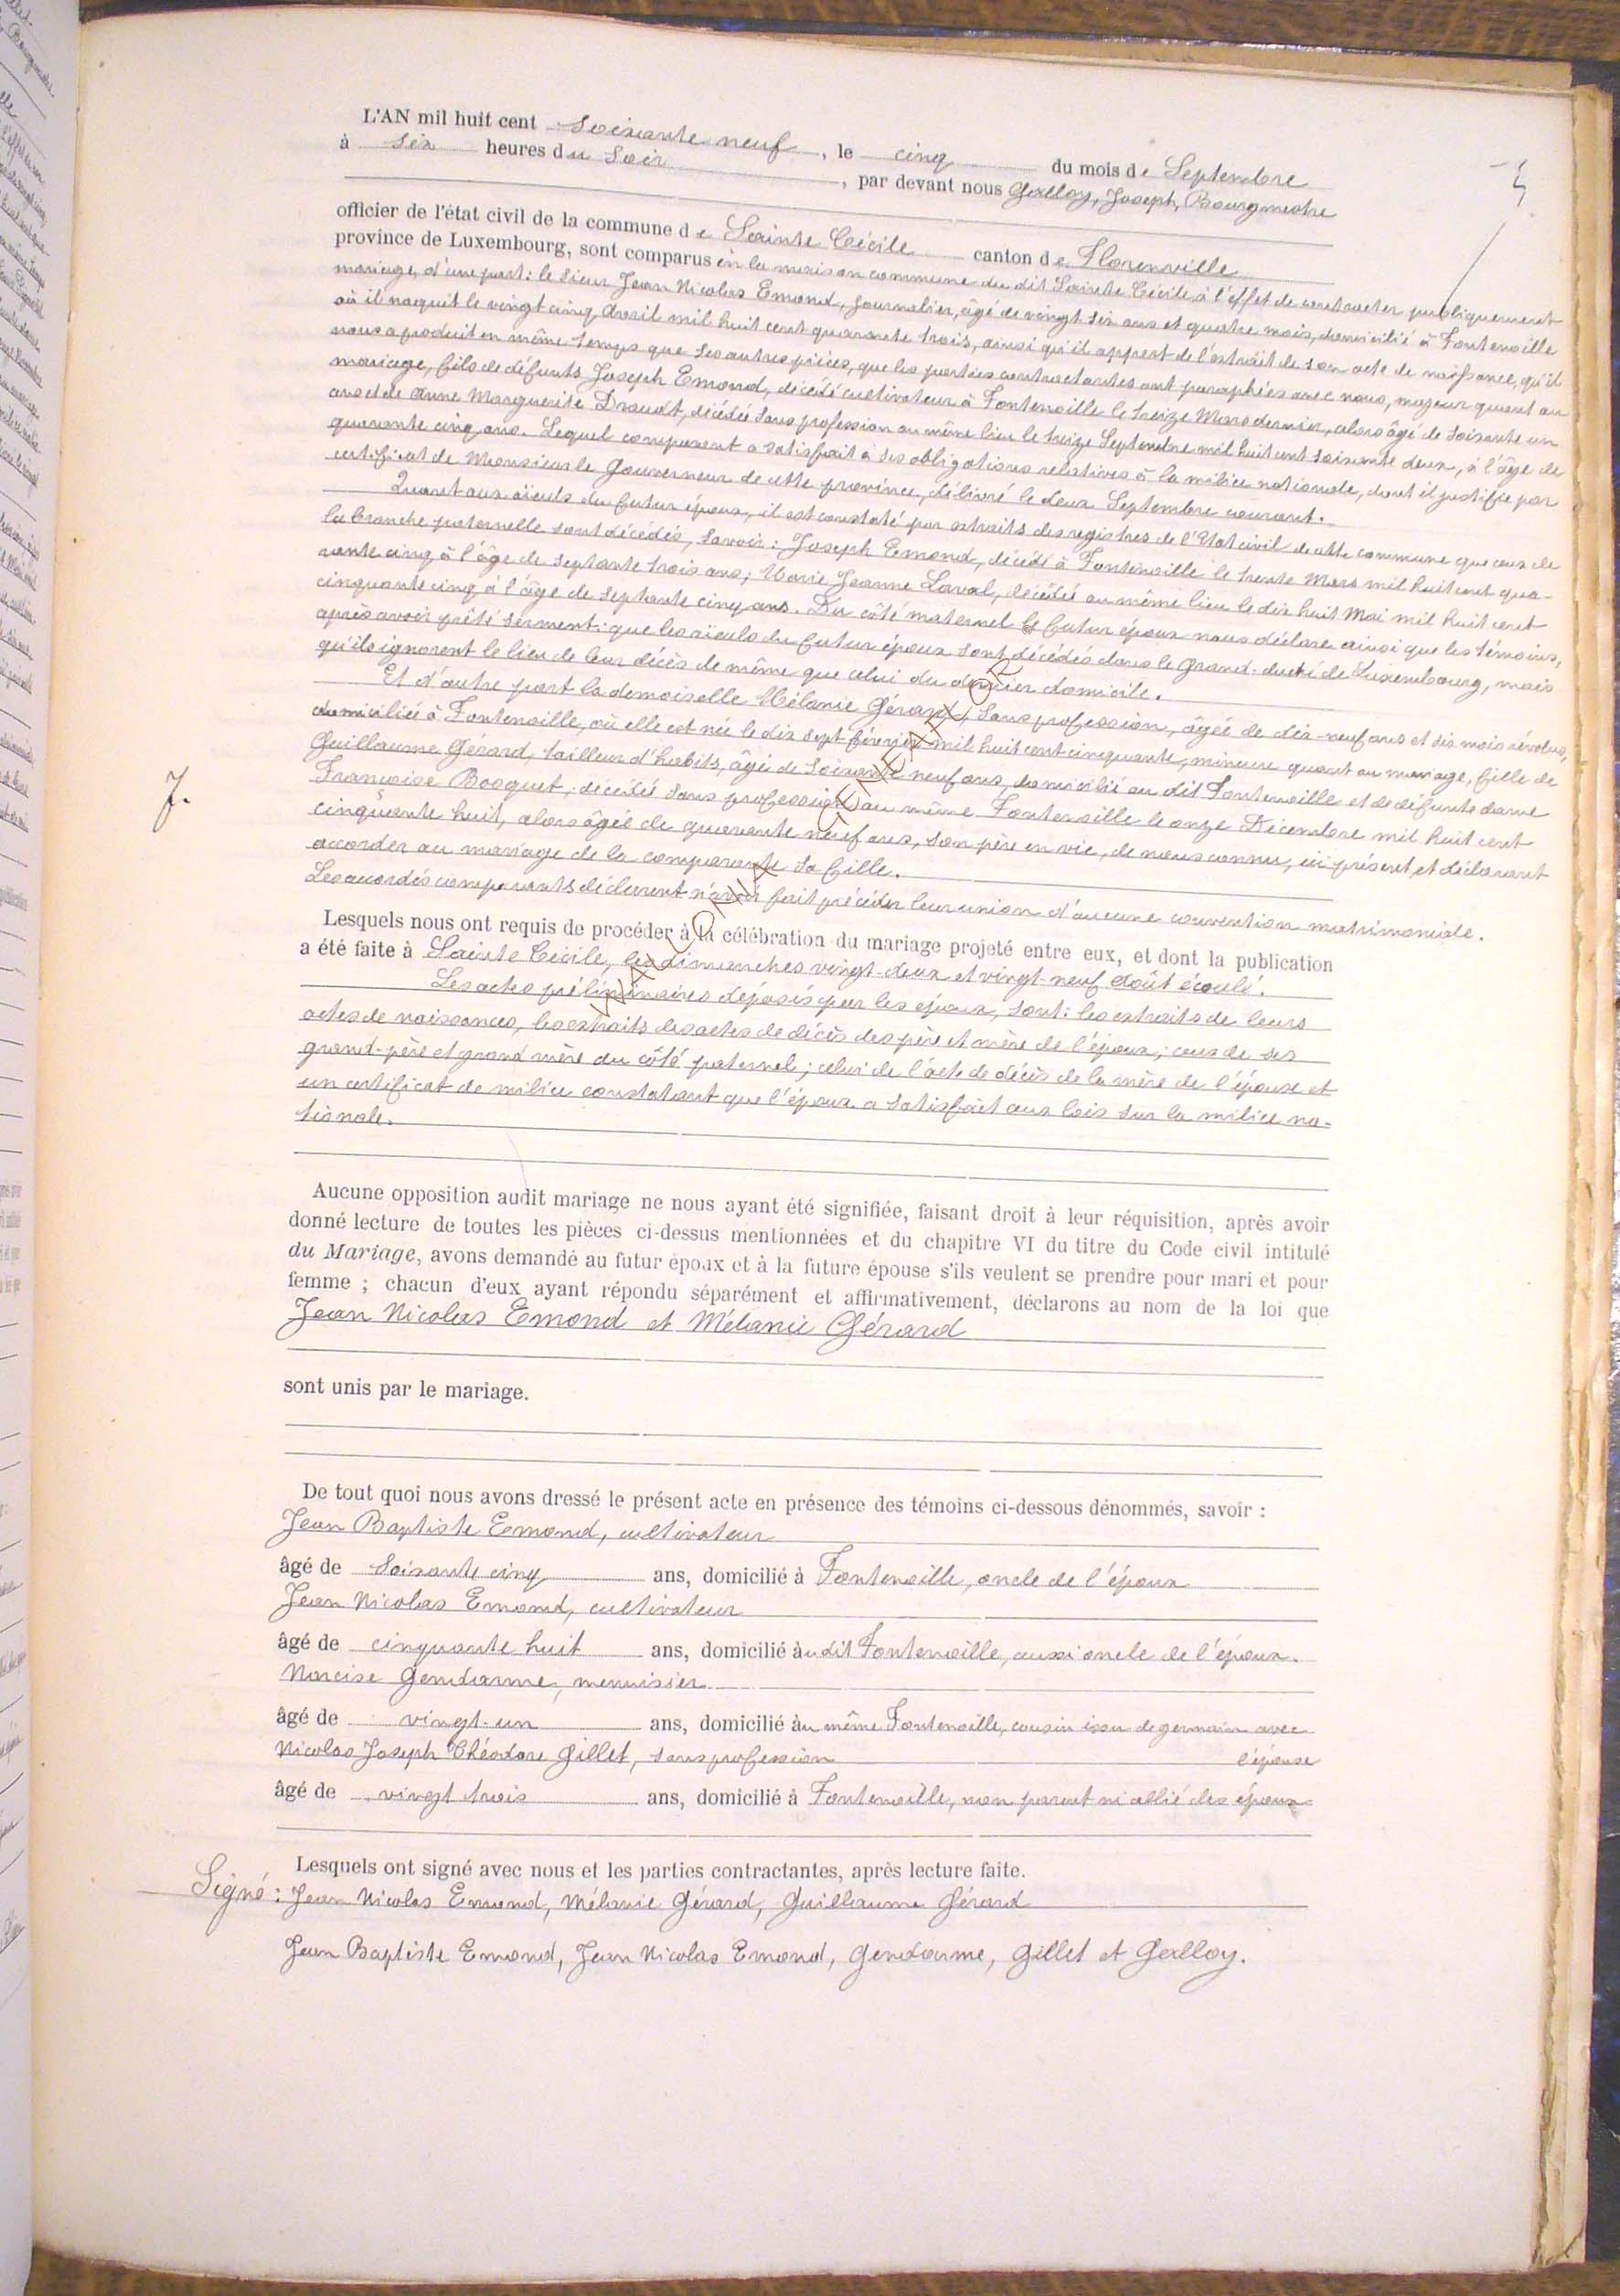 L'AN mil huit cent soixante neuf, le cinq du mois de Septembre
à six heures du soir, par devant nous Galloy, Joseph, Bourgmestre
officier de l'état civil de la commune de Sainte Cécile canton de Florenville
province de Luxembourg, sont comparus en la maison commune du dit Sainte Cécile, à l'effet de contracter publiquement
mariage, d'une part : le sieur Jean Nicolas Emond, journalier, âgé de vingt six ans et quatre mois, domicilié à Fontenoille
où il naquit le vingt cinq Avril mil huit cent quarante trois, ainsi qu'il appert de l'extrait de son acte de naissance, qu'il
nous a produit en même temps que ses autres pièces, que les parties contractantes ont paraphées avec nous, majeur quant au
mariage, fils de défunts Joseph Emond, décédé cultivateur à Fontenoille le treize Mars dernier, alors âgé de soixante un
ans et de Anne Marguerite Draudt, décédée sans profession au même lieu le treize Septembre mil huit cent soixante deux, à l'âge de
quarante cinq ans. Lequel comparant a satisfait à ses obligations relatives à la milice nationale, dont il justifie par
certificat de Monsieur le Gouverneur de cette province, délivré le deux Septembre courant.
Quant aux aïeuls du futur époux, il est constaté par extraits des registres de l'Etat civil de cette commune que ceux de
la branche paternelle sont décédés, savoir : Joseph Emond, décédé à Fontenoille le trente Mars mil huit cent qua-
rante cinq à l'âge de septante trois ans ; Marie Jeanne Laval, décédée au même lieu le dix huit Mai mil huit cent
cinquante cinq à l'âge de septante cinq ans. Du côté maternel le futur époux nous déclare ainsi que les témoins,
après avoir prêté serment : que les aïeuls du futur époux sont décédés dans le Grand-duché de Luxembourg, mais
qu'ils ignorent le lieu de leur décès de même que celui du dernier domicile.
Et d'autre part la demoiselle Mélanie Gérard, sans profession, âgée de dix-neuf ans et six mois révolus,
domiciliée à Fontenoille, où elle est née le dix sept février mil huit cent cinquante, mineure quant au mariage, fille de
Guillaume Gérard, tailleur d'habits, âgé de soixante neuf ans, domicilié au dit Fontenoille et de défunte dame
Françoise Bosquet, décédée sans profession au même Fontenoille le onze Décembre mil huit cent
cinquante huit, alors âgée de quarante neuf ans, son père en vie, de nous connu, ici présent et déclarant
accorder au mariage de la comparante sa fille.
7.
Les accordés comparants déclarent n'avoir fait précéder leur union d'aucune convention matrimoniale.
Lesquels nous ont requis de procéder à la célébration du mariage projeté entre eux, et dont la publication
a été faite à Sainte Cécile, les dimanches vingt-deux et vingt-neuf Août écoulé.
Les actes préliminaires déposés par les époux, sont : les extraits de leurs
actes de naissances, les extraits des actes de décès des père et mère de l'époux ; ceux de ses
grand-père et grand mère du côté paternel ; celui de l'acte de décès de la mère de l'épouse et
un certificat de milice constatant que l'époux a satisfait aux lois sur la milice na-
tionale.
Aucune opposition audit mariage ne nous ayant été signifiée, faisant droit à leur réquisition, après avoir
donné lecture de toutes les pièces ci-dessus mentionnées et du chapitre VI du titre du Code civil intitulé
du Mariage, avons demandé au futur époux et à la future épouse s'ils veulent se prendre pour mari et pour
femme ; chacun d'eux ayant répondu séparément et affirmativement, déclarons au nom de la loi que
Jean Nicolas Emond et Mélanie Gérard
sont unis par le mariage.
De tout quoi nous avons dressé le présent acte en présence des témoins ci-dessous dénommés, savoir :
Jean Baptiste Emond, cultivateur
âgé de soixante cinq ans, domicilié à Fontenoille, oncle de l'époux
Jean Nicolas Emond, cultivateur
âgé de cinquante huit ans, domicilié àu dit Fontenoille, aussi oncle de l'époux.
Narcise Gendarme, menuisier
âgé de vingt-un ans, domicilié àu même Fontenoille, cousin issu de germain avec
Nicolas Joseph Théodore Gillet, sans profession l'épouse
âgé de vingt trois ans, domicilié à Fontenoille, non parent ni allié des époux
Lesquels ont signé avec nous et les parties contractantes, après lecture faite.
Signé : Jean Nicolas Emond, Mélanie Gérard, Guillaume Gérard
Jean Baptiste Emond, Jean Nicolas Emond, Gendarme, Gillet et Galloy.